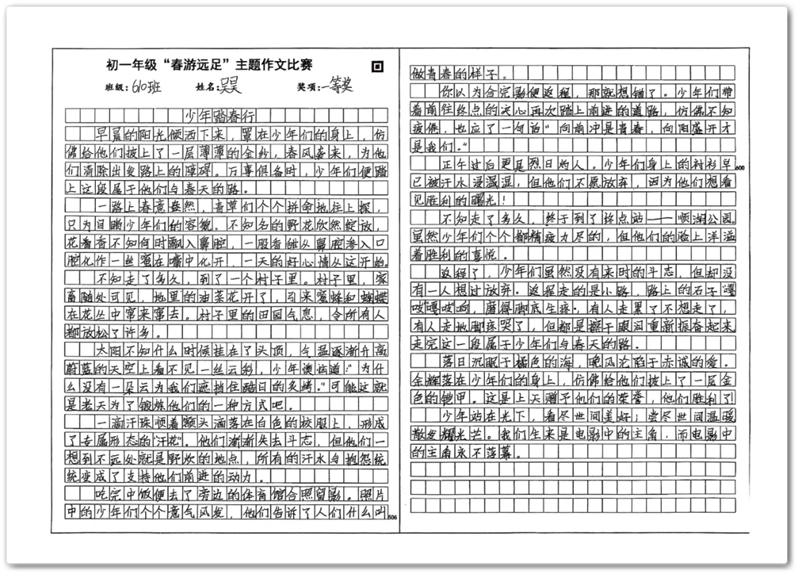 初一年级“春游远足”主题作文比赛
班级：610班 姓名：吴昊 奖项：一等奖
少年踏春行
早晨的阳光倾洒下来，罩在少年们的身上，仿
佛给他们披上了一层薄薄的金纱，春风袭来，为他
们清除出发路上的障碍。万事俱备时，少年们便踏
上这段属于他们与春天的路。
一路上春意盎然，青草们个个拼命地往上探，
只为目睹少年们的容貌。不知名的野花欣然绽放，
花香香不知何时飘入鼻腔，一股香味从鼻腔渗入口
腔化作一丝蜜在嘴中化开，一天的好心情从这开始。
不知走了多久，到了一个村子里。村子里，家
禽随处可见，地里的油菜花开了，引来蜜蜂和蝴蝶
在花丛中窜来窜去。村子里的田园气息，令所有人
都放松了许多。
太阳不知什么时候挂在了头顶，气温逐渐升高
蔚蓝的天空上看不见一丝云彩，少年谈论道：“为什
么没有一朵云为我们遮挡住酷日的炙烤。”可能这就
是老天为了锻炼他们的一种方式吧。
一滴汗珠顺着额头滴落在白色的校服上，形成
了专属形态的“汗花”。他们渐渐失去斗志，但他们一
想到不远处就是野炊的地点，所有的汗水与抱怨统
统变成了支持他们前进的动力。
吃完中饭便去了旁边的体育馆合照留影。照片
中的少年们个个意气风发，他们告诉了人们什么叫
606
做青春的样子。
你以为合完影便返程，那就想错了。少年们带
着前往终点的决心再次踏上前进的道路，仿佛不知
疲倦，也应了一句话“向前冲是青春，向阳盛开才
是我们。”
正午过白更是烈日灼人，少年们身上的衬衫早
600
已被汗水浸湿湿，但他们不愿放弃，因为他们想看
见胜利的曙光！
不知走了多久，终于到了终点站——顺湖公园
虽然少年们个个精疲力尽的，但他们的脸上洋溢
着胜利的喜悦。
返程了，少年们虽然没有来时的斗志，但却没
有一人想过放弃。返程走的是小路，路上的石子嘎
吱嘎吱响，磨得脚底生疼，有人走累了不想走了，
有人走地脚疼哭了，但都是擦干眼泪重新振奋起来
走完这一段属于少年们与春天的路。
落日沉眠于橘色的海，晚风沦陷于赤诚的爱。
金辉落在少年们的身上，仿佛给他们披上了一层金
色的铠甲。这是上天赠予他们的荣誉，他们胜利了
少年站在光下，看尽世间美好；尝尽世间温暖
散发耀光芒。我们生来是电影中的主角，而电影中
的主角永不落幕。